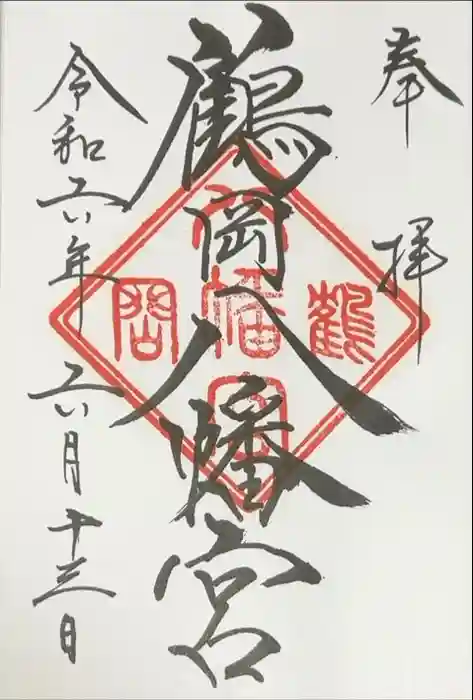 奉拝
鶴岡八幡宮
鶴岡八幡宮
令和六年六月十三日